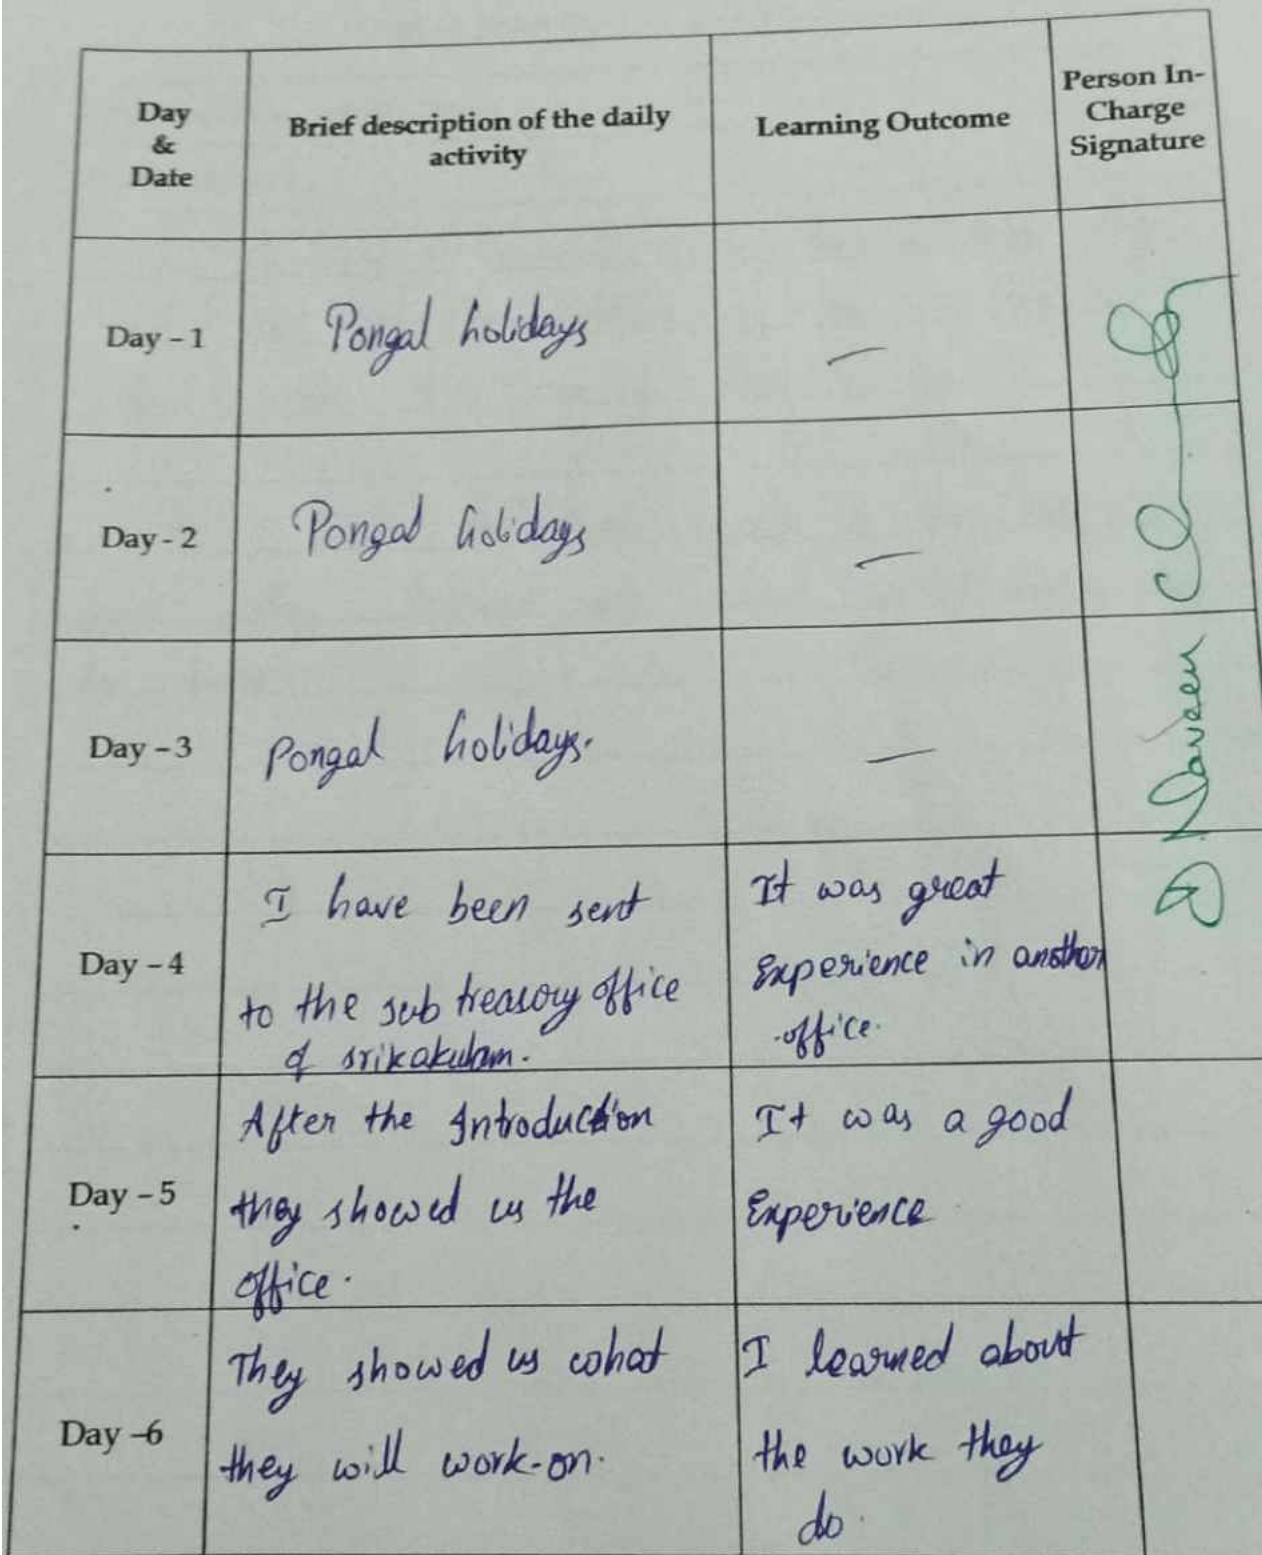 Day
&
Date
Brief description of the daily
activity
Learning Outcome
Person In-
Charge
Signature
Day - 1
Pongal holidays
—
Day - 2
Pongal holidays
—
Day - 3
Pongal holidays.
—
D Naveen
Day - 4
I have been sent
to the sub treasory office
of srikakulam.
It was great
Experience in another
office.
Day - 5
After the Introduction
they showed us the
office.
It was a good
Experience
Day -6
They showed us what
they will work-on.
I learned about
the work they
do.